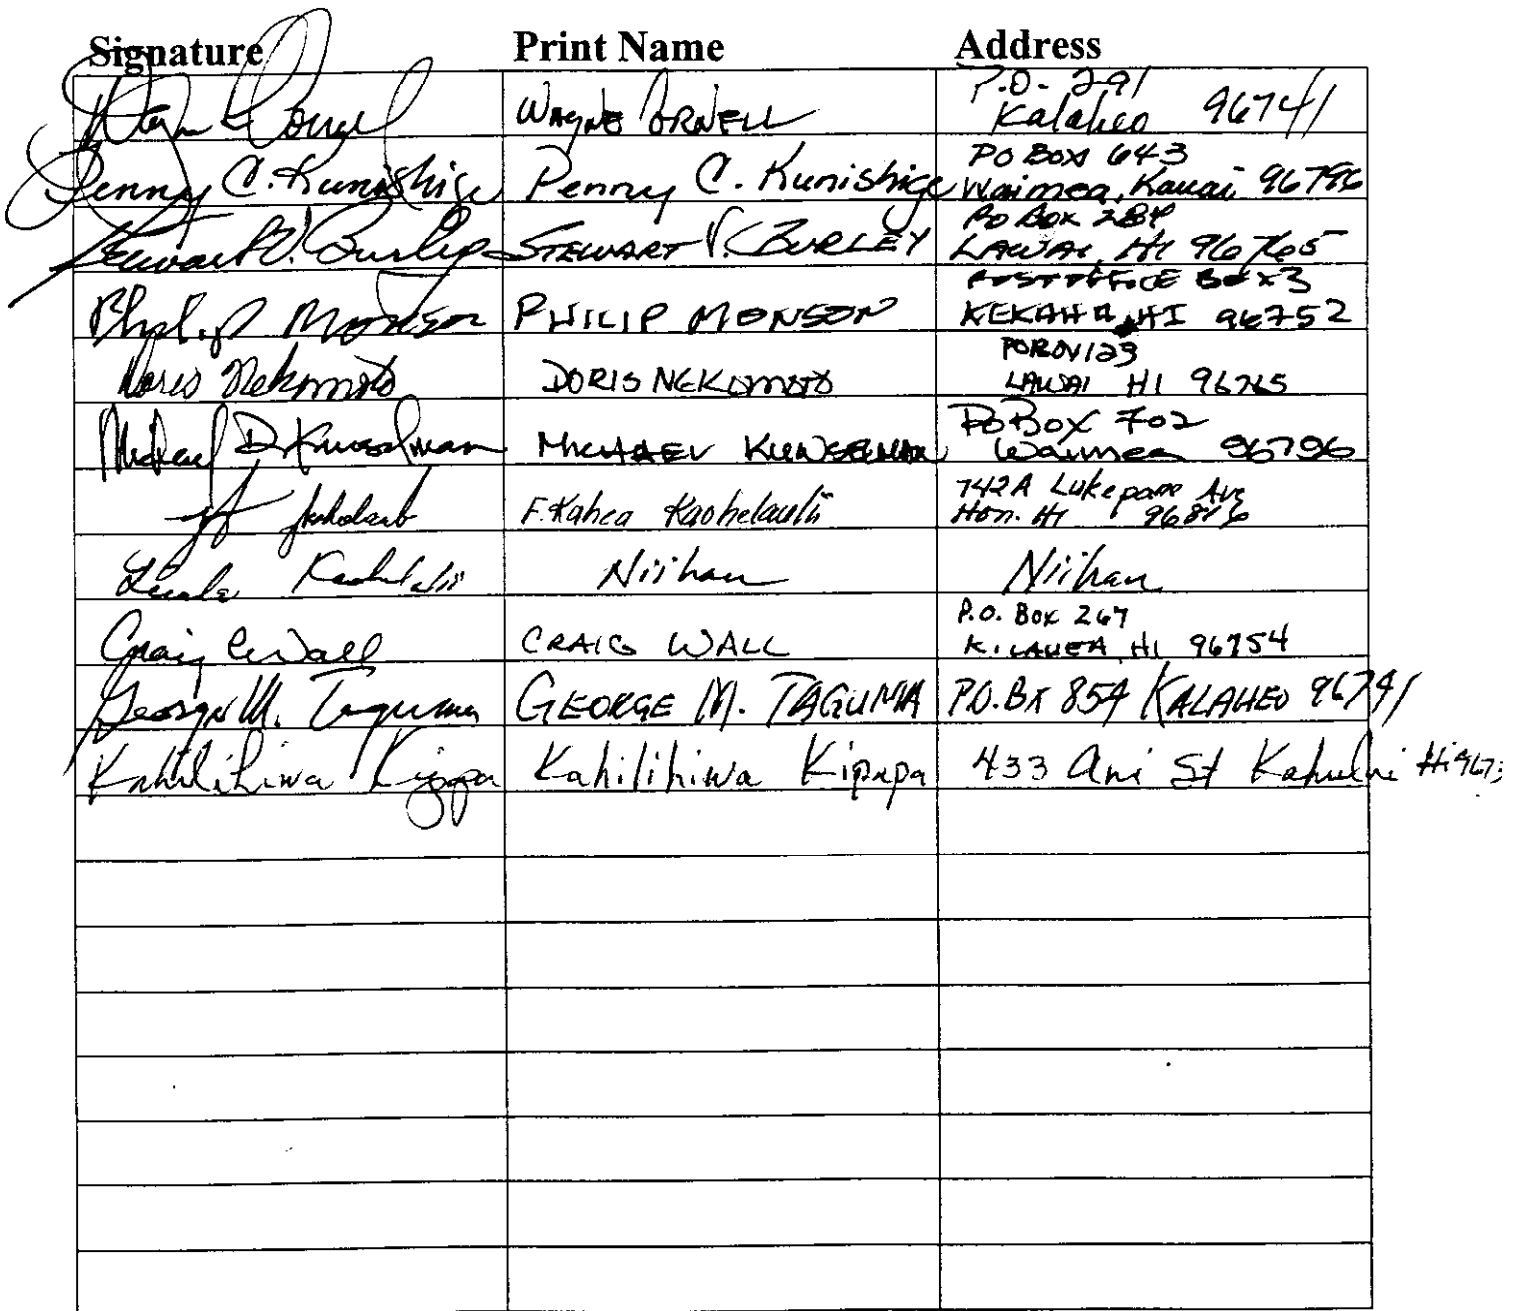 Signature Print Name Address
WAYNE ORNELL P.O. 291
Kalaheo 96741
Penny C. Kunishige Penny C. Kunishige PO BOX 643
Waimea, Kauai 96796
Stewart V. Burley STEWART V. BURLEY PO BOX 284
LAWAI, HI 96765
Philip Monson PHILIP MONSON POST OFFICE BOX 3
KEKAHA HI 96752
Doris Nekomoto DORIS NEKOMOTO 123
LAWAI HI 96765
Michael D. Kunselman MICHAEL KUNSELMAN PO BOX 702
Waimea 96796
F. Kahea Kaohelaulii 742A Lukepane Ave
Hon. HI 96816
Niihau Niihau
Craig Wall CRAIG WALL P.O. Box 267
KILAUEA, HI 96754
George M. Taguma GEORGE M. TAGUMA P.O. BX 854 KALAHEO 96741
Kahilihiwa Kipapa Kahilihiwa Kipapa 433 Ani St Kahului Hi 9673